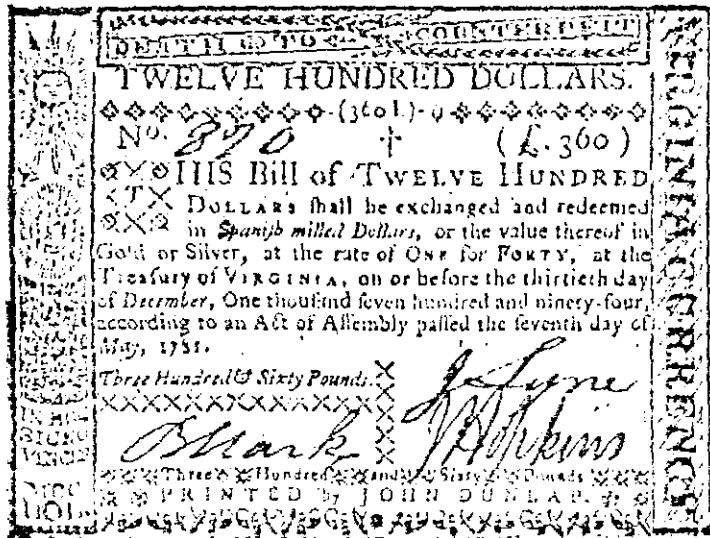 DEATH TO COUNTERFEIT
TWELVE HUNDRED DOLLARS.
(360 l.)
No. 870 (£. 360)
THIS Bill of TWELVE HUNDRED
DOLLARS ſhall be exchanged and redeemed
in Spaniſh milled Dollars, or the value thereof in
Gold or Silver, at the rate of ONE for FORTY, at the
Treaſury of VIRGINIA, on or before the thirtieth day
of December, One thouſand ſeven hundred and ninety-four,
according to an Act of Aſſembly paſſed the ſeventh day of
May, 1781.
Three Hundred & Sixty Pounds.
J Lyne
B Stark J Hopkins
Three Hundred and Sixty Pounds
PRINTED by JOHN DUNLAP.
VIRGINIA CURRENCY
IN HOC
SIGNO
VINCES